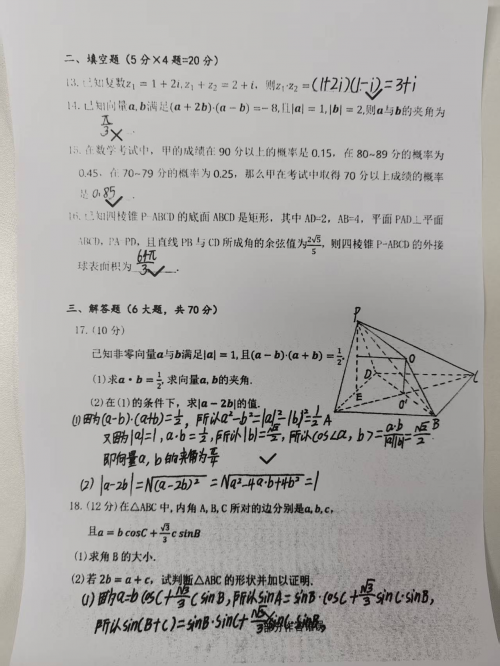 二、填空题（5分×4题=20分）
13.已知复数z₁ = 1 + 2i, z₁ + z₂ = 2 + i, 则z₁·z₂ = (1+2i)(1-i) = 3+i
14.已知向量a,b满足(a + 2b)·(a − b) = −8,且|a| = 1, |b| = 2,则a与b的夹角为
π/3 ×
15.在数学考试中，甲的成绩在90分以上的概率是0.15，在80~89分的概率为
0.45，在70~79分的概率为0.25，那么甲在考试中取得70分以上成绩的概率
是 0.85 ✓
16.已知四棱锥P-ABCD的底面ABCD是矩形，其中AD=2，AB=4，平面PAD⊥平面
ABCD，PA=PD，且直线PB与CD所成角的余弦值为2√5/5，则四棱锥P-ABCD的外接
球表面积为 64π/3 ✓
三、解答题（6大题，共70分）
17.（10分）
已知非零向量a与b满足|a| = 1,且(a − b)·(a + b) = 1/2,
(1)求a·b = 1/2, 求向量a, b的夹角.
(2)在(1)的条件下，求|a − 2b|的值.
P
O
D
C
E
O'
A
B
(1)因为(a-b)·(a+b)=1/2，所以a²-b²=|a|²-|b|²=1/2
又因为|a|=1，a·b=1/2，所以|b|=√2/2，所以cos<a，b>=a·b/|a||b|=√2/2
即向量a，b的夹角为π/4 ✓
(2) |a-2b|=√(a-2b)²=√a²-4a·b+4b²=1
18.(12分)在△ABC中,内角A,B,C所对的边分别是a,b,c,
且a = b cosC + √3/3 c sinB
(1)求角B的大小.
(2)若2b = a + c，试判断△ABC的形状并加以证明.
(1)因为a=b cosC+√3/3 c sinB,所以sinA=sinB·cosC+√3/3 sinC·sinB,
所以sin(B+C)=sinB·sinC+√3/3 sinC·sinB,